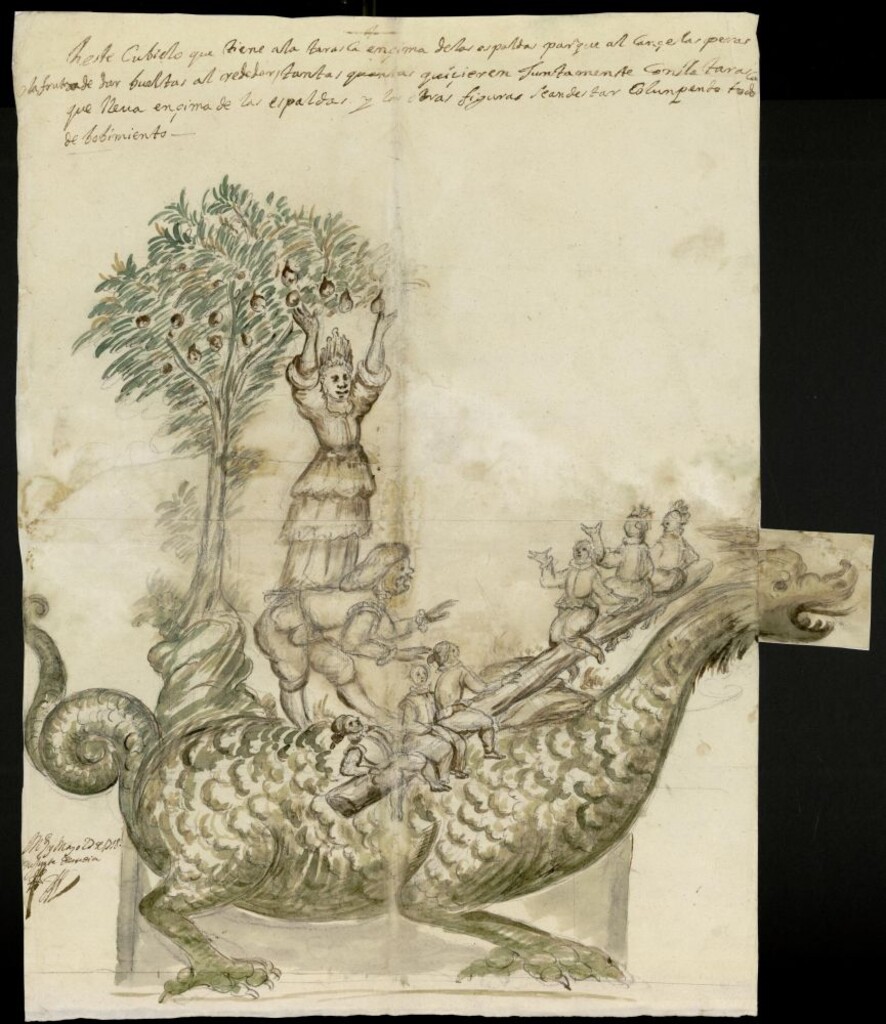 este Cubielo que tiene ala tarasca encima delas espaldas parque al cançe las peras
ila fruta a de dar bueltas al rededor tantas quantas quicieren Juntamenste Conila taras
que lleua encima de las espaldas. y los otras figuras seandestar Columpeando todo
de bobimiento
Md y Mayo 20 de